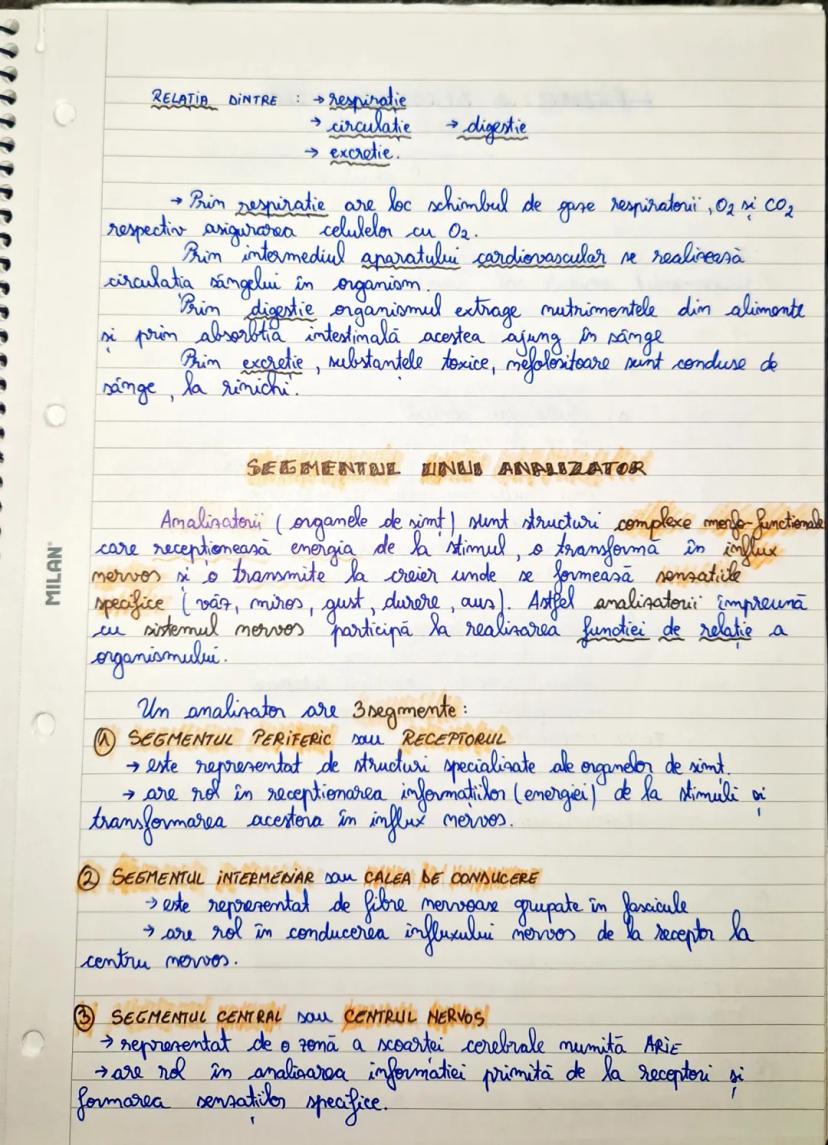 RELAȚIA DINTRE : → respirație
→ circulație → digestie
→ excreție.
→ Prin respirație are loc schimbul de gaze respiratorii, O2 și CO2
respectiv asigurarea celulelor cu O2.
Prin intermediul aparatului cardiovascular se realizează
circulația sângelui în organism.
Prin digestie organismul extrage nutrimentele din alimente
și prin absorbția intestinală acestea ajung în sânge
Prin excreție, substanțele toxice, nefolositoare sunt conduse de
sânge, la rinichi.
SEGMENTUL UNUI ANALIZATOR
Analizatorii (organele de simț) sunt structuri complexe morfo-funcționale
care recepționează energia de la stimul, o transformă în influx
nervos și o transmite la creier unde se formează senzațiile
specifice (văz, miros, gust, durere, auz). Astfel analizatorii împreună
cu sistemul nervos participă la realizarea funcției de relație a
organismului.
Un analizator are 3 segmente:
① SEGMENTUL PERIFERIC sau RECEPTORUL
→ este reprezentat de structuri specializate ale organelor de simț.
→ are rol în recepționarea informațiilor (energiei) de la stimuli și
transformarea acestora în influx nervos.
② SEGMENTUL INTERMEDIAR sau CALEA DE CONDUCERE
→ este reprezentat de fibre nervoase grupate în fascicule
→ are rol în conducerea influxului nervos de la receptor la
centru nervos.
③ SEGMENTUL CENTRAL sau CENTRUL NERVOS
→ reprezentat de o zonă a scoarței cerebrale numită ARIE
→ are rol în analizarea informației primită de la receptori și
formarea senzațiilor specifice.
MILAN